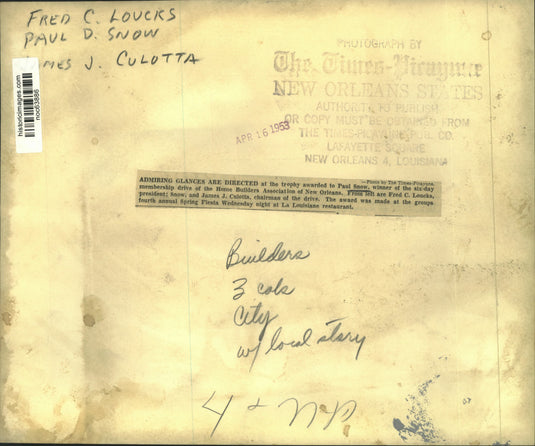 FRED C. LOUCKS
PAUL D. SNOW
MES J. CULOTTA
historicimages.com
nod63886
PHOTOGRAPH BY
The Times-Picayune
NEW ORLEANS STATES
AUTHORITY TO PUBLISH
OR COPY MUST BE OBTAINED FROM
THE TIMES-PICAYUNE PUB. CO.
LAFAYETTE SQUARE
NEW ORLEANS 4, LOUISIANA
APR 16 1953
—Photo by The Times-Picayune.
ADMIRING GLANCES ARE DIRECTED at the trophy awarded to Paul Snow, winner of the six-day
membership drive of the Home Builders Association of New Orleans. From left are Fred C. Loucks,
president; Snow, and James J. Culotta, chairman of the drive. The award was made at the groups
fourth annual Spring Fiesta Wednesday night at La Louisiane restaurant.
Builders
3 cols
City
w/ local story
4